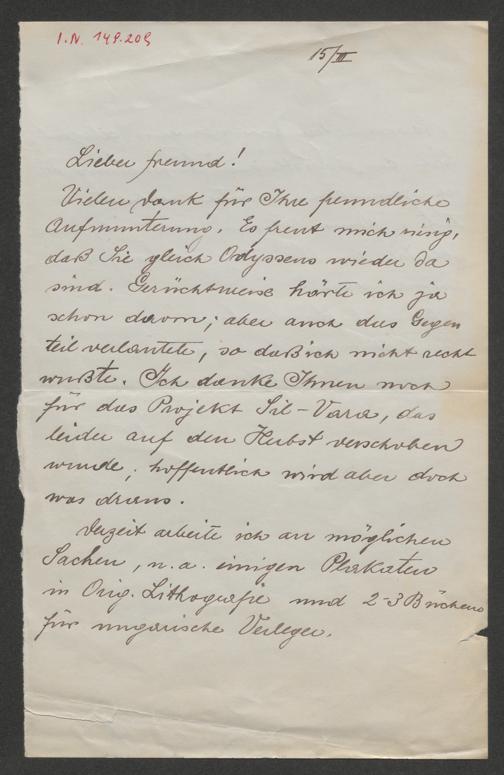 I.N. 149.209
15/III
Lieber Freund!
Vielen Dank für Ihre freundliche
Aufmunterung. Es freut mich riesig,
daß Sie gleich Odysseus wieder da
sind. Gerüchtweise hörte ich ja
schon davon; aber auch das Gegen
teil verlautete, so daß ich nicht recht
wußte. Ich danke Ihnen noch
für das Projekt Sil-Vara, das
leider auf den Herbst verschoben
wurde; hoffentlich wird aber doch
was draus.
Derzeit arbeite ich an möglichen
Sachen, u. a. einigen Plakaten
in Orig. Lithografie und 2-3 Büchern
für ungarische Verleger.